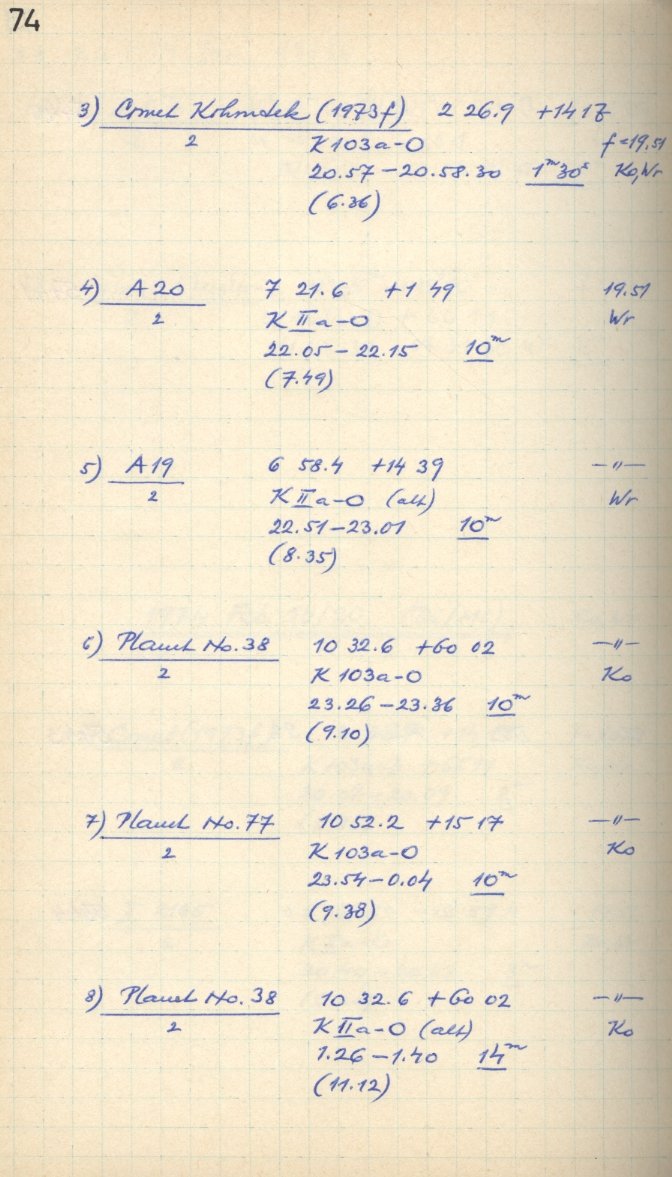 74
3) Comet Kohoutek (1973f) 2 26.9 +14 17
2 K 103a-O f=19.51
20.57-20.58.30 1m 30s Ko, Wr
(6.36)
4) A 20 7 21.6 +1 49 19.51
2 K II a-O Wr
22.05-22.15 10m
(7.49)
5) A 19 6 58.4 +14 39 —"—
2 K II a-O (alt) Wr
22.51-23.01 10m
(8.35)
6) Planet No. 38 10 32.6 +60 02 —"—
2 K 103a-O Ko
23.26-23.36 10m
(9.10)
7) Planet No. 77 10 52.2 +15 17 —"—
2 K 103a-O Ko
23.54-0.04 10m
(9.38)
8) Planet No. 38 10 32.6 +60 02 —"—
2 K II a-O (alt) Ko
1.26-1.40 14m
(11.12)